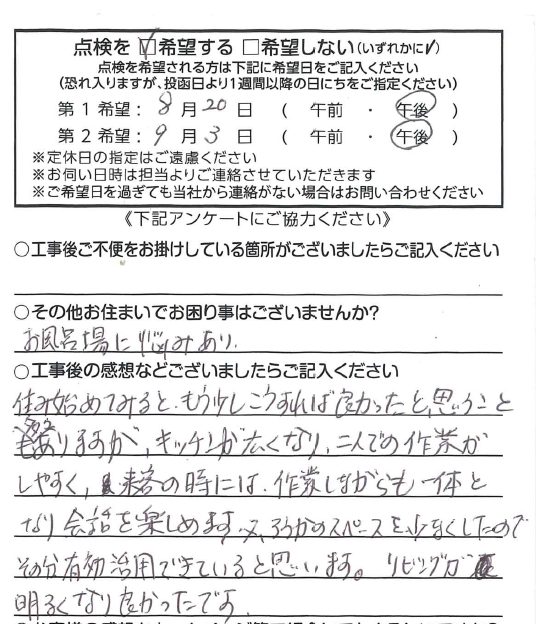 点検を☑希望する □希望しない(いずれかに✓)
点検を希望される方は下記に希望日をご記入ください
(恐れ入りますが、投函日より1週間以降の日にちをご指定ください)
第1希望: 8月20日 ( 午前 ・ 午後 )
第2希望: 9月3日 ( 午前 ・ 午後 )
※定休日の指定はご遠慮ください
※お伺い日時は担当よりご連絡させていただきます
※ご希望日を過ぎても当社から連絡がない場合はお問い合わせください
《下記アンケートにご協力ください》
○工事後ご不便をお掛けしている箇所がございましたらご記入ください
○その他お住まいでお困り事はございませんか?
お風呂場に悩みあり.
○工事後の感想などございましたらご記入ください
住み始めてみると、もう少しこうすれば良かったと、思うこと
ありますが、キッチンが広くなり、二人での作業が
しやすく、来客の時には、作業しながらも一体と
なり会話を楽しめます。又、ろうかのスペースを少なくしたので
その分有効活用できていると思います。リビングが
明るくなり良かったです.